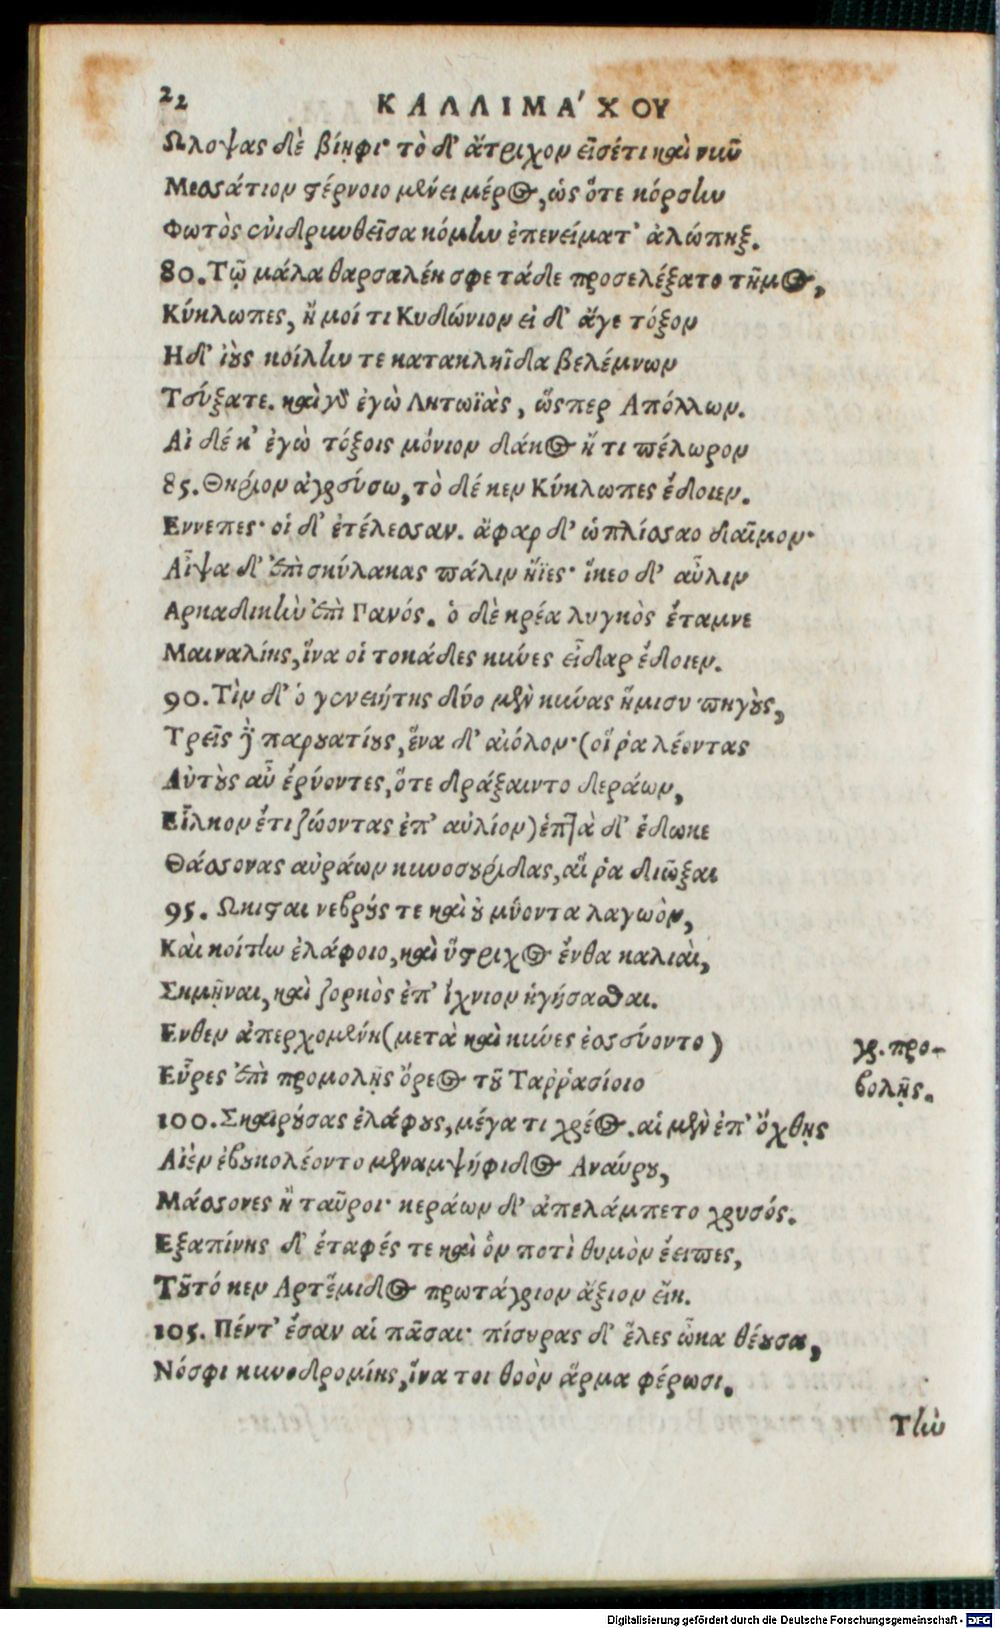 22
ΚΑΛΛΙΜΑ΄ΧΟΥ
Ωλοψας δὲ βίηφι· τὸ δ' ἄτριχον εἰσέτι καὶ νῦν
Μεσσάτιον στέρνοιο μένει μέρος, ὡς ὅτε κόρσην
Φωτὸς ἐνιδρυνθεῖσα κόμην ἐπενείματ' ἀλώπηξ.
80. Τῷ μάλα θαρσαλέη σφε τάδε προσελέξατο τῆμος,
Κύκλωπες, ἤ μοί τι Κυδώνιον εἰ δ' ἄγε τόξον
Ηδ' ἰοὺς κοίλην τε κατακληῖδα βελέμνων
Τεύξατε. καὶ γὸ ἐγὼ Λητωϊὰς, ὥσπερ Απόλλων.
Αἰ δέ κ' ἐγὼ τόξοις μόνιον δάκος ἤ τι πέλωρον
85. Θηρίον ἀγρεύσω, τὸ δέ κεν Κύκλωπες ἔδοιεν.
Εννεπες· οἱ δ' ἐτέλεσσαν. ἄφαρ δ' ὡπλίσσαο δαῖμον·
Αἶψα δ' ἐπὶ σκύλακας πάλιν ἤϊες· ἵκεο δ' αὖλιν
Αρκαδικὴν ἐπὶ Γανός. ὁ δὲ κρέα λυγκὸς ἔταμνε
Μαιναλίης, ἵνα οἱ τοκάδες κύνες εἶδαρ ἔδοιεν.
90. Τὶν δ' ὁ γενειήτης δύο μὲν κύνας ἥμισυ πηγοὺς,
Τρεῖς δὲ παρουατίους, ἕνα δ' αἰόλον· (οἵ ῥα λέοντας
Αὐτοὺς αὖ ἐρύοντες, ὅτε δράξαιντο δεράων,
Εἷλκον ἔτι ζώοντας ἐπ' αὐλίον) ἑπτὰ δ' ἔδωκε
Θάσσονας αὐράων κυνοσουρίδας, αἵ ῥα διῶξαι
95. Ωκισται νεβρούς τε καὶ οὐ μύοντα λαγωὸν,
Καὶ κοίτην ἐλάφοιο, καὶ ὕστριχος ἔνθα καλιαὶ,
Σημῆναι, καὶ ζορκὸς ἐπ' ἴχνιον ἡγήσασθαι.
Ενθεν ἀπερχομένη (μετὰ καὶ κύνες ἐσσεύοντο)
γρ. προ-
Εὗρες ἐπὶ προμολῇς ὄρεος τοῦ Ταῤῥασίοιο
βολῇς.
100. Σκαιρούσας ἐλάφους, μέγα τι χρέος. αἱ μὲν ἐπ' ὄχθῃς
Αἰὲν ἐβουκολέοντο μελναμψήφιδος Αναύρου,
Μάσσονες ἢ ταῦροι· κεράων δ' ἀπελάμπετο χρυσός.
Εξαπίνης δ' ἔταφές τε καὶ ὃν ποτὶ θυμὸν ἔειπες,
Τοῦτό κεν Αρτέμιδος πρωτάγριον ἄξιον εἴη.
105. Πέντ' ἔσαν αἱ πᾶσαι· πίσυρας δ' ἕλες ὦκα θέουσα,
Νόσφι κυνοδρομίης, ἵνα τοι θοὸν ἅρμα φέρωσι.
Τὴν
Digitalisierung gefördert durch die Deutsche Forschungsgemeinschaft - DFG